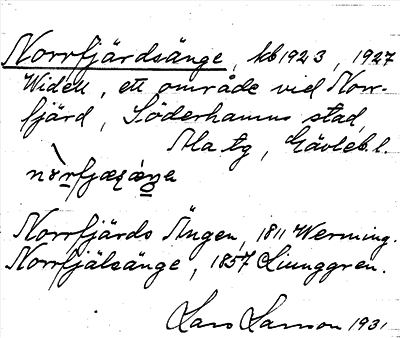 Norrfjärdsänge, kb 1923, 1927
Widell, ett område vid Norr-
fjärd, Söderhamns stad,
Ala tg, Gävleb. l.
Norrfjärds Ängen, 1811 Werming.
Norrfjälsänge, 1857 Ljunggren.
Lars Larsson 1931